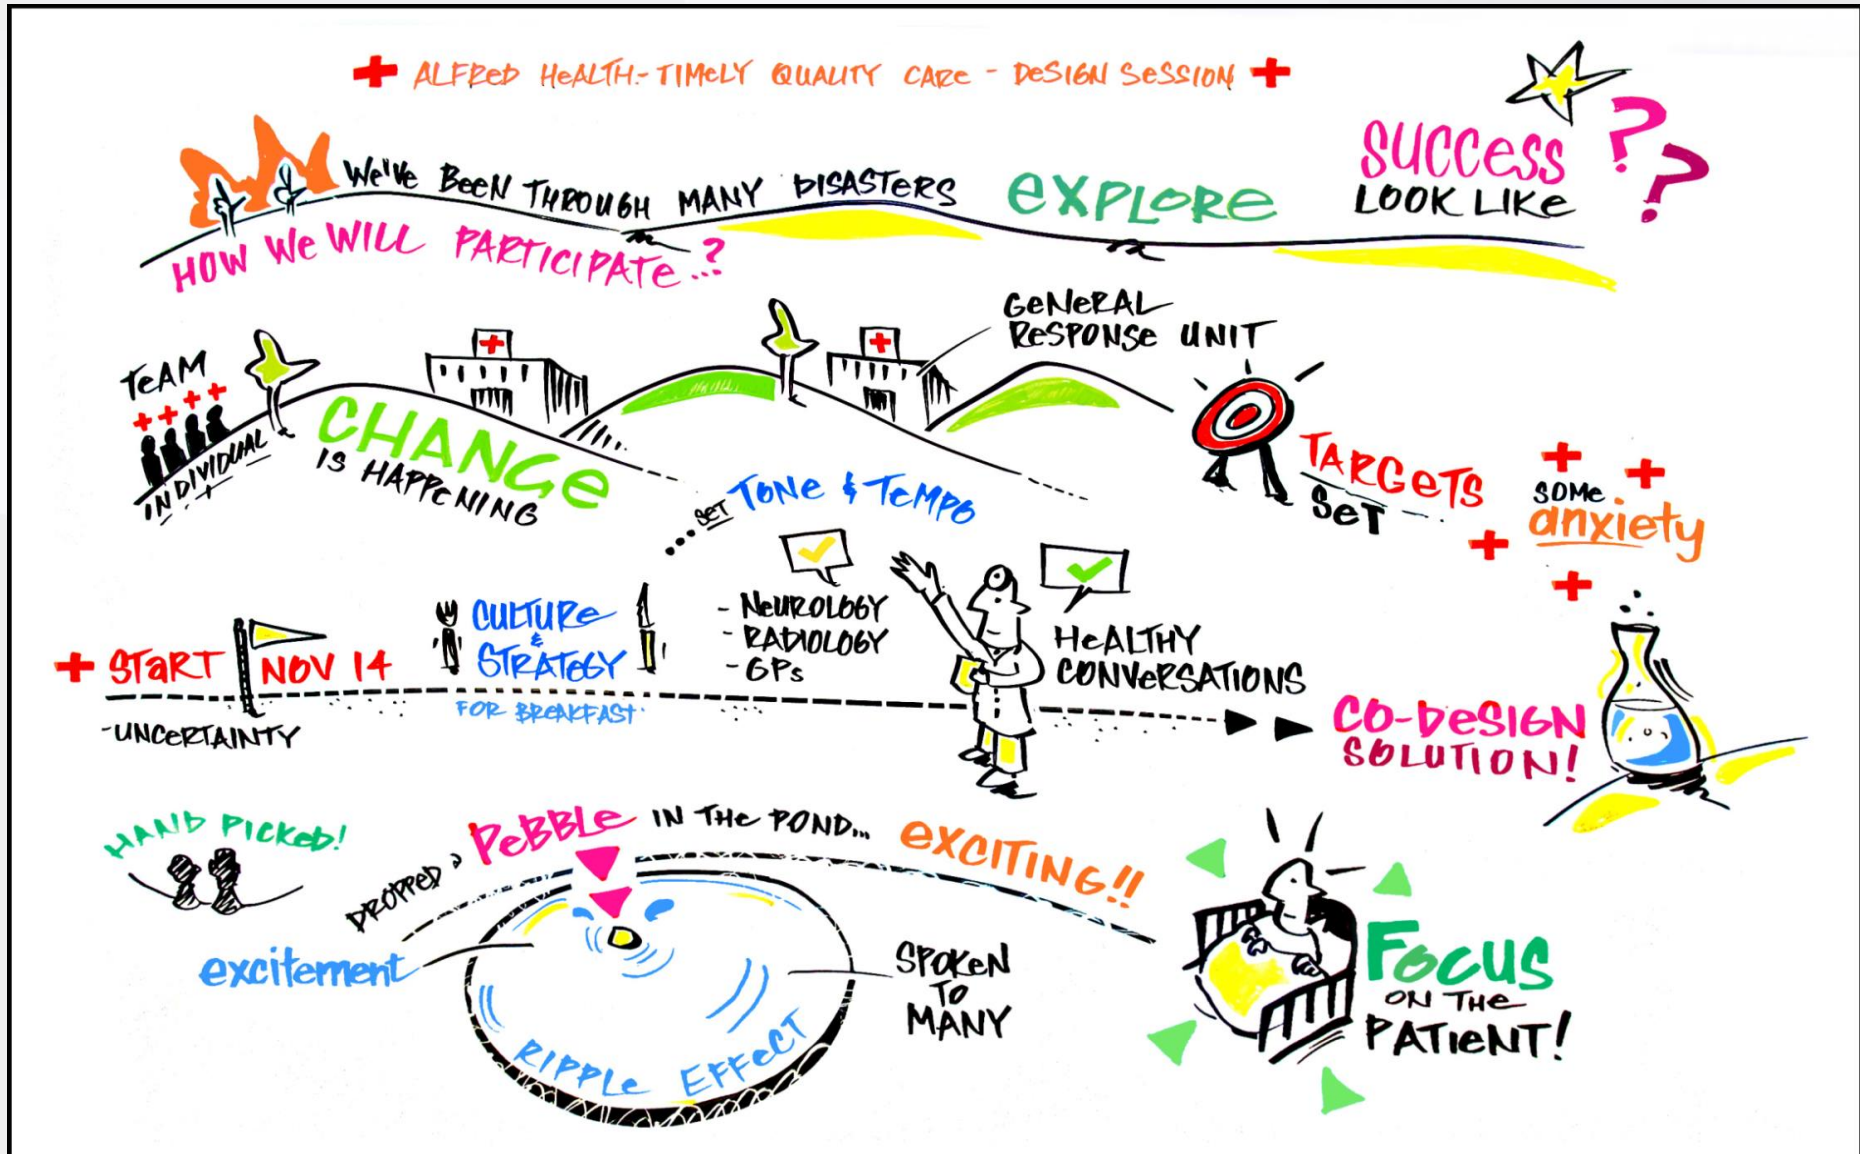 ALFRED HEALTH - TIMELY QUALITY CARE - DESIGN SESSION
WE'VE BEEN THROUGH MANY DISASTERS
EXPLORE
SUCCESS
LOOK LIKE
??
HOW WE WILL PARTICIPATE...?
GENERAL
RESPONSE UNIT
TEAM
INDIVIDUAL
CHANGE
IS HAPPENING
TARGETS
SET
SOME
anxiety
... SET TONE & TEMPO
START NOV 14
- UNCERTAINTY
CULTURE
&
STRATEGY
FOR BREAKFAST
- NEUROLOGY
- RADIOLOGY
- GPs
HEALTHY
CONVERSATIONS
CO-DESIGN
SOLUTION!
HAND PICKED!
DROPPED a PEBBLE IN THE POND...
EXCITING!!
excitement
SPOKEN
TO
MANY
RIPPLE EFFECT
FOCUS
ON THE
PATIENT!